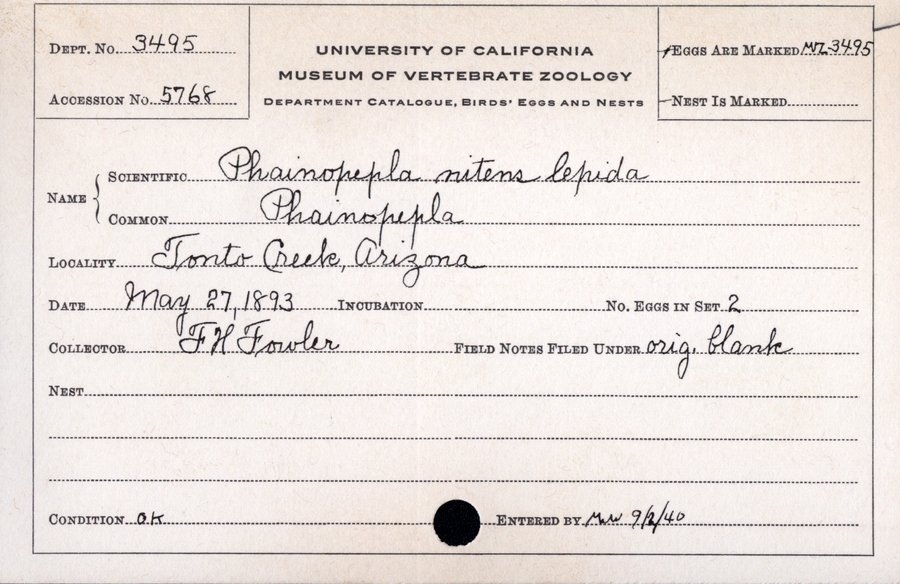 DEPT. No. 3495
ACCESSION No. 5768
UNIVERSITY OF CALIFORNIA
MUSEUM OF VERTEBRATE ZOOLOGY
DEPARTMENT CATALOGUE, BIRDS' EGGS AND NESTS
EGGS ARE MARKED MVZ 3495
NEST IS MARKED
NAME
SCIENTIFIC Phainopepla nitens lepida
COMMON Phainopepla
LOCALITY Tonto Creek, Arizona
DATE May 27, 1893 INCUBATION No. EGGS IN SET 2
COLLECTOR F H Fowler FIELD NOTES FILED UNDER orig. blank
NEST
CONDITION OK ENTERED BY 9/2/40